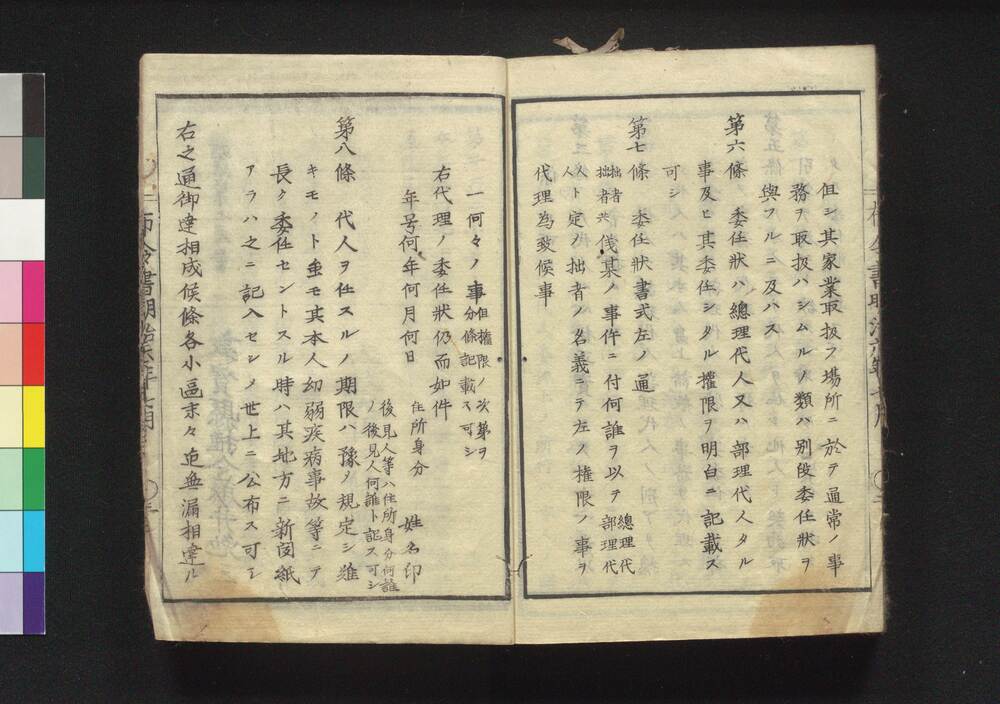 但シ其家業取扱フ場所ニ於テ通常ノ事
務ヲ取扱ハシムルノ類ハ別段委任狀ヲ
與フルニ及ハス
第六條 委任狀ハ總理代人又ハ部理代人タル
事及ヒ其委任シタル權限ヲ明白ニ記載ス
可シ
第七條 委任狀書式左ノ通
拙者
拙者共
儀某ノ事件ニ付何誰ヲ以テ
總理代
部理代
人ト定ノ拙者ノ名義ニテ左ノ權限ノ事ヲ
代理為致候事
一何々ノ事
但權限ノ次第ヲ
分條記載ス可シ
右代理ノ委任狀仍而如件
年号何年何月何日
住所身分
姓名印
後見人等ハ住所身分何誰
ノ後見人何誰ト記ス可シ
第八條 代人ヲ任スルノ期限ハ豫ノ規定シ難
キモノト虽モ其本人幼弱疾病事故等ニテ
長ク委任セントスル時ハ其地方ニ新聞紙
アラハ之ニ記入セシノ世上ニ公布ス可シ
右之通御達相成候條各小區末々迄無漏相達ル